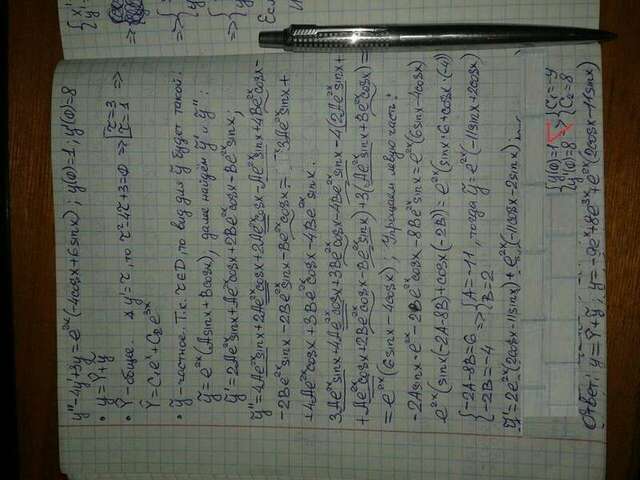 y''-4y'+3y=e^{2x}(-4cosx+6sinx); y(0)=1; y'(0)=8
• y=Ŷ+ỹ
• Ŷ-общее. y'=r, то r²-4r+3=0 => [r=3 r=1 =>
Ŷ=C₁e^x+C₂e^{3x}
• ỹ-частное. Т.к. r∈D, то вид для ỹ будет такой:
ỹ=e^{2x}(Asinx+Bcosx), далее найдем ỹ' и ỹ'':
ỹ'=2Ae^{2x}sinx+Ae^{2x}cosx+2Be^{2x}cosx-Be^{2x}sinx;
ỹ''=4Ae^{2x}sinx+2Ae^{2x}cosx+2Ae^{2x}cosx-Ae^{2x}sinx+4Be^{2x}cosx-
-2Be^{2x}sinx-2Be^{2x}sinx-Be^{2x}cosx= 3Ae^{2x}sinx+
+4Ae^{2x}cosx+3Be^{2x}cosx-4Be^{2x}sinx.
3Ae^{2x}sinx+4Ae^{2x}cosx+3Be^{2x}cosx-4Be^{2x}sinx-4(2Ae^{2x}sinx+
+Ae^{2x}cosx+2Be^{2x}cosx-Be^{2x}sinx)+3(Ae^{2x}sinx+Be^{2x}cosx)=
=e^{2x}(6sinx-4cosx); Упрощаем левую часть:
-2Asinx·e^{2x}-2Be^{2x}cosx-8Be^{2x}sinx=e^{2x}(6sinx-4cosx)
e^{2x}(sinx(-2A-8B)+cosx(-2B))=e^{2x}(sinx·6+cosx·(-4))
{-2A-8B=6 -2B=-4 => {A=-11 B=2, тогда ỹ: e^{2x}(-11sinx+2cosx)
ỹ'=2e^{2x}(2cosx-11sinx)+e^{2x}(-11cosx-2sinx);
{y(0)=1 y'(0)=8 => {C₁=-9 C₂=8
Ответ: y=Ŷ+ỹ; y=-9e^x+8e^{3x}+e^{2x}(2cosx-11sinx)